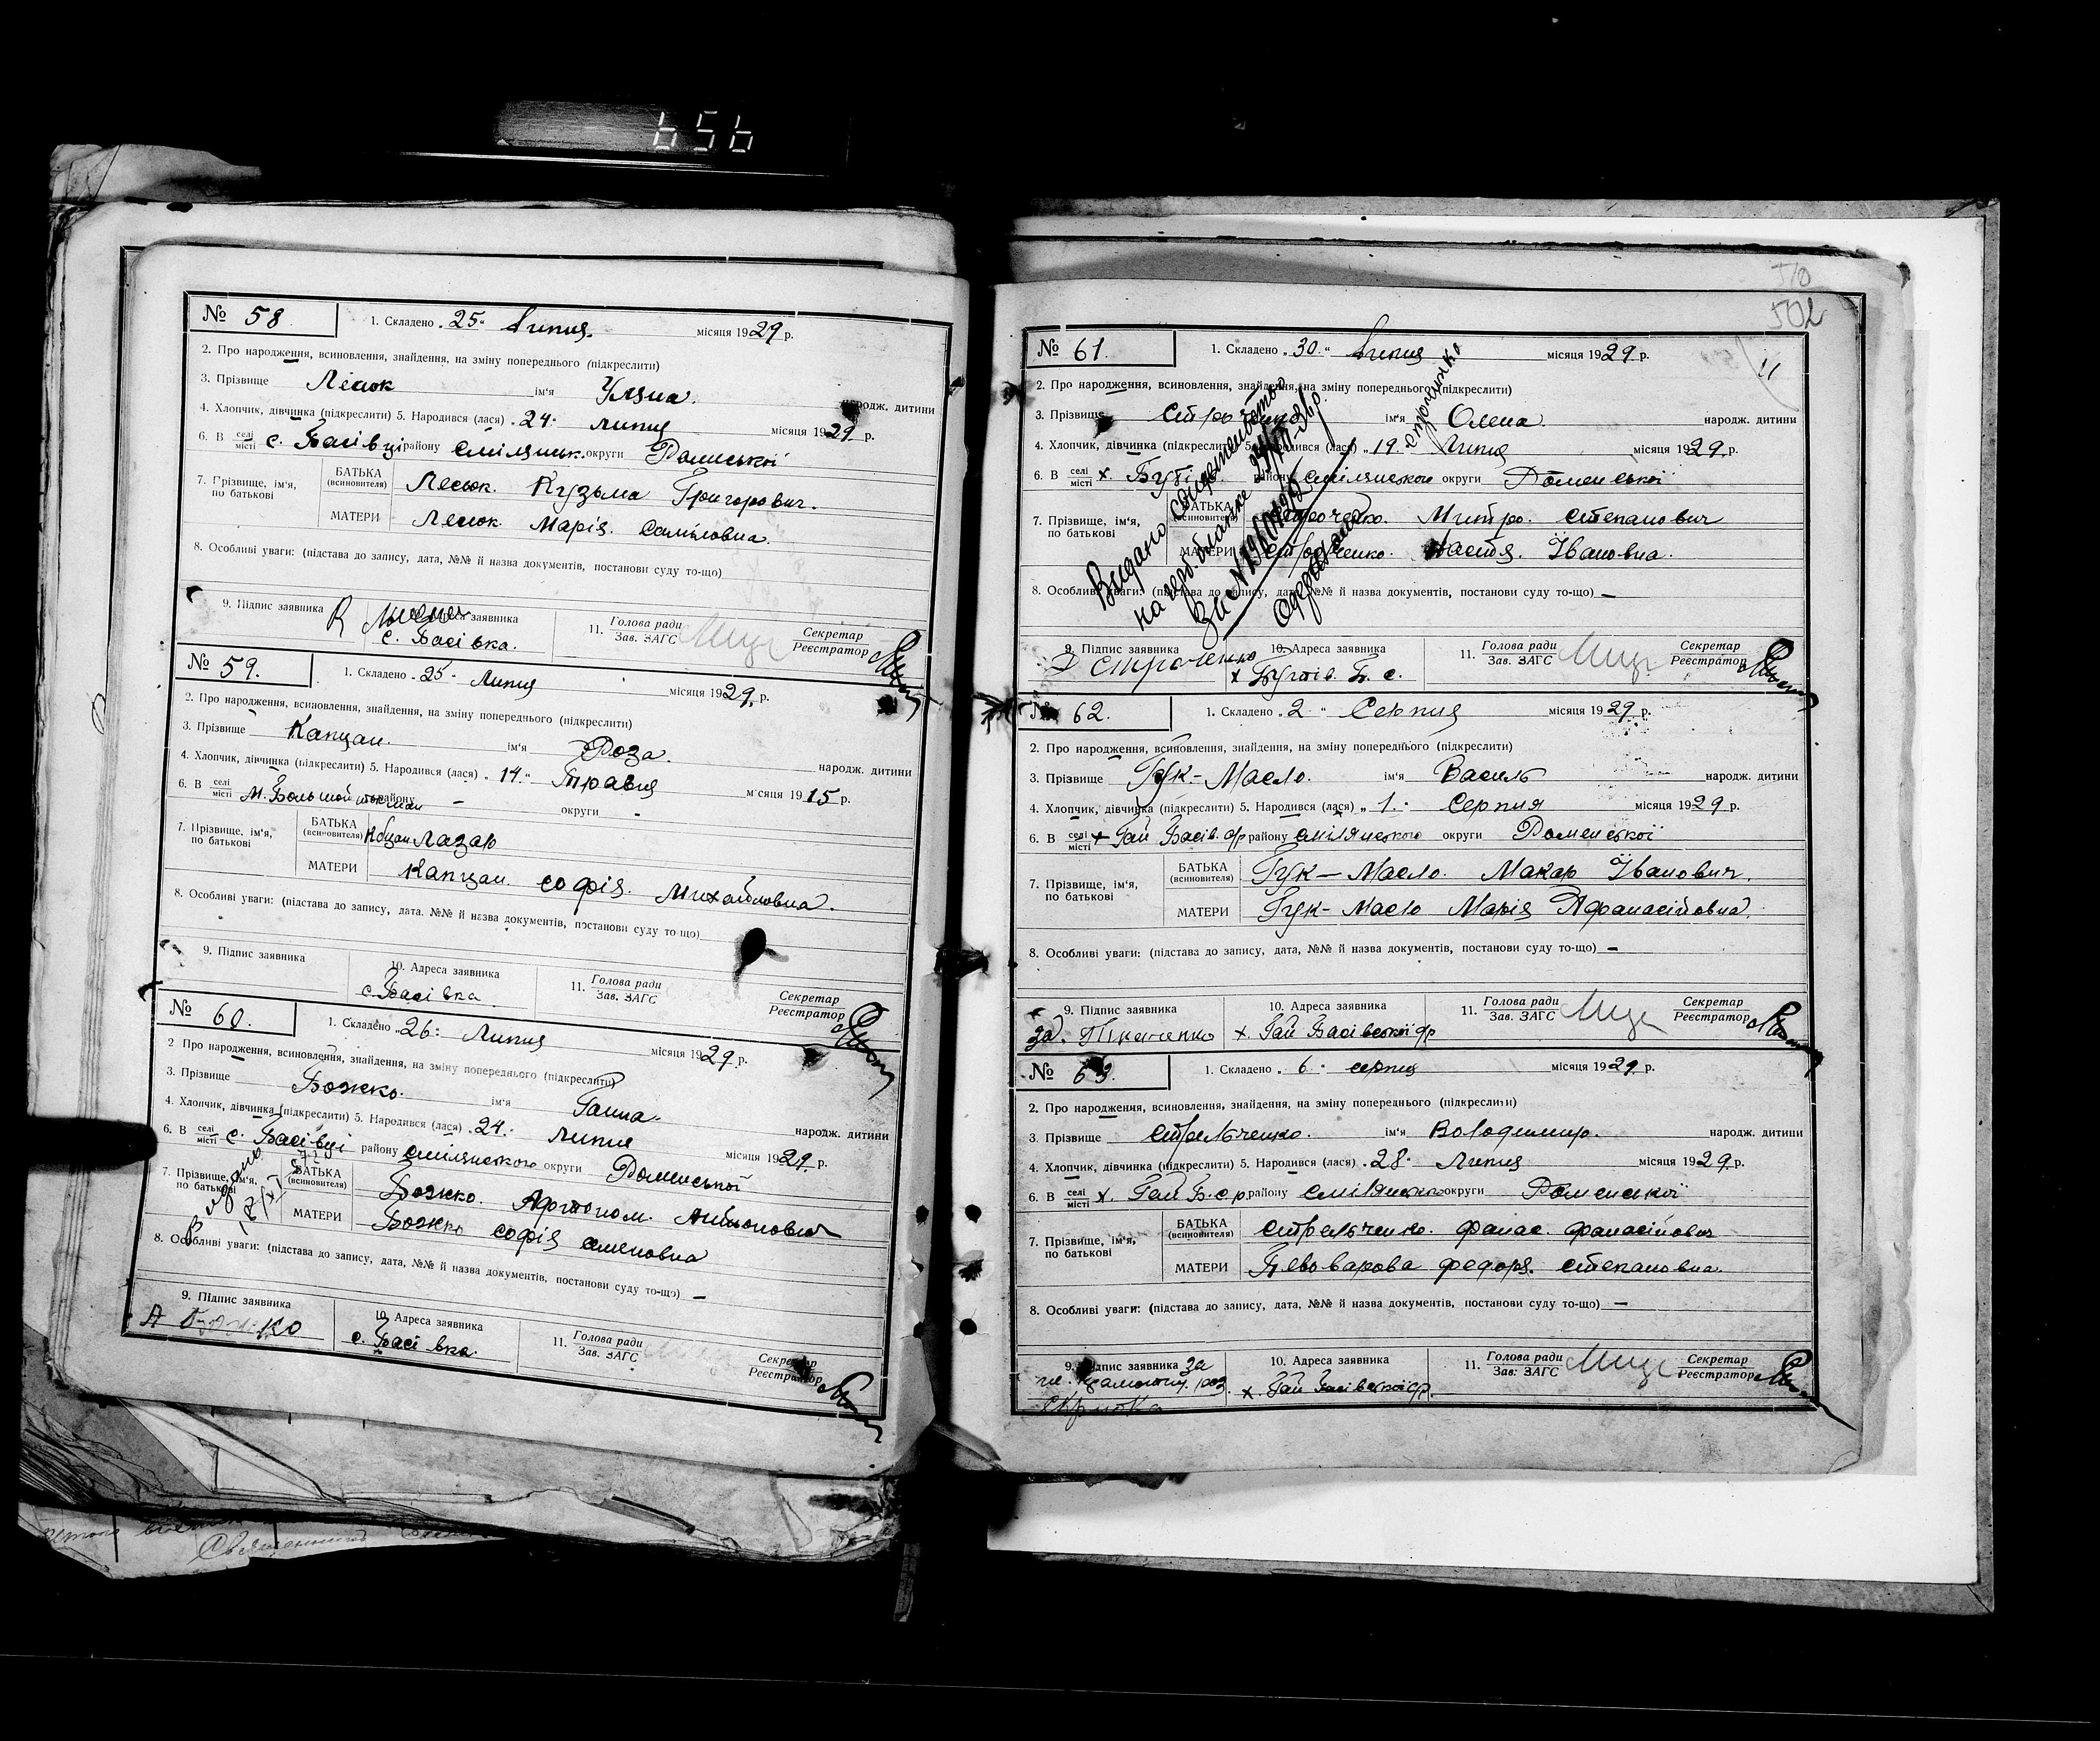 656
№ 58. 1. Складено „25" Липня місяця 1929 р.
2. Про народження, всиновлення, знайдення, на зміну попереднього (підкреслити)
3. Прізвище Лесюк ім'я Уляна. народж. дитини
4. Хлопчик, дівчинка (підкреслити) 5. Народився (лася) „24" липня місяця 1929 р.
6. В селі місті с. Басівці району Смілянськ. округи Роменської
7. Прізвище, ім'я, по батькові БАТЬКА (всиновителя) Лесюк. Кузьма Григорович.
МАТЕРИ Лесюк. Марія.
8. Особливі уваги: (підстава до запису, дата, №№ й назва документів, постанови суду то-що)
9. Підпис заявника К 10. Адреса заявника с. Басівка. 11. Голова ради Зав. ЗАГС Секретар Реєстратор
№ 59. 1. Складено „25" Липня місяця 1929 р.
2. Про народження, всиновлення, знайдення, на зміну попереднього (підкреслити)
3. Прізвище Капцан. ім'я Роза. народж. дитини
4. Хлопчик, дівчинка (підкреслити) 5. Народився (лася) „14" Травня місяця 1915 р.
6. В селі місті м. Большой району – округи -
7. Прізвище, ім'я, по батькові БАТЬКА (всиновителя) Лазар
МАТЕРИ Капцан. Софія. Михайловна.
8. Особливі уваги: (підстава до запису, дата, №№ й назва документів, постанови суду то-що)
9. Підпис заявника 10. Адреса заявника с. Басівка 11. Голова ради Зав. ЗАГС Секретар Реєстратор
№ 60. 1. Складено „26" Липня місяця 1929 р.
2. Про народження, всиновлення, знайдення, на зміну попереднього (підкреслити)
3. Прізвище Божко. ім'я Ганна. народж. дитини
4. Хлопчик, дівчинка (підкреслити) 5. Народився (лася) „24" Липня місяця 1929 р.
6. В селі місті с. Басівці району Смілянського округи Роменської
7. Прізвище, ім'я, по батькові БАТЬКА (всиновителя) Божко.
МАТЕРИ Божко Софія Семеновна
Видано
8. Особливі уваги: (підстава до запису, дата, №№ й назва документів, постанови суду то-що) –
9. Підпис заявника А Божко 10. Адреса заявника с. Басівка. 11. Голова ради Зав. ЗАГС Секретар Реєстратор
510
502
№ 61. 1. Складено „30" Липня місяця 1929 р.
2. Про народження, всиновлення, знайдення, на зміну попереднього (підкреслити)
3. Прізвище ім'я Олена. народж. дитини
4. Хлопчик, дівчинка (підкреслити) 5. Народився (лася) „19" Липня місяця 1929 р.
6. В селі місті х. району Смілянського округи Роменської
7. Прізвище, ім'я, по батькові БАТЬКА (всиновителя) Митро. Степанович
МАТЕРИ Настя. Івановна.
Видано
8. Особливі уваги: (підстава до запису, дата, №№ й назва документів, постанови суду то-що) –
9. Підпис заявника 10. Адреса заявника х Бутів. Б. с. 11. Голова ради Зав. ЗАГС Секретар Реєстратор
№ 62. 1. Складено „2" Серпня місяця 1929 р.
2. Про народження, всиновлення, знайдення, на зміну попереднього (підкреслити)
3. Прізвище Гук-Масло. ім'я Василь народж. дитини
4. Хлопчик, дівчинка (підкреслити) 5. Народився (лася) „1" Серпня місяця 1929 р.
6. В селі місті х Гай Басів. с/р району Смілянського округи Роменської
7. Прізвище, ім'я, по батькові БАТЬКА (всиновителя) Гук-Масло. Макар Іванович.
МАТЕРИ Гук-Масло Марія Афанасійовна.
8. Особливі уваги: (підстава до запису, дата, №№ й назва документів, постанови суду то-що) –
9. Підпис заявника за. Ткаченко 10. Адреса заявника х. Гай Басівської с/р 11. Голова ради Зав. ЗАГС Секретар Реєстратор
№ 63. 1. Складено „6" серпня місяця 1929 р.
2. Про народження, всиновлення, знайдення, на зміну попереднього (підкреслити)
3. Прізвище Стрельченко. ім'я Володимир. народж. дитини
4. Хлопчик, дівчинка (підкреслити) 5. Народився (лася) „28" Липня місяця 1929 р.
6. В селі місті х. Гай Б.с.р. району Смілянсько округи Роменської
7. Прізвище, ім'я, по батькові БАТЬКА (всиновителя) Стрельченко. Фанас. Фанасійович
МАТЕРИ Пивоварова Федора. Степановна.
8. Особливі уваги: (підстава до запису, дата, №№ й назва документів, постанови суду то-що) –
9. Підпис заявника За 10. Адреса заявника х. Гай Басівської с/р. 11. Голова ради Зав. ЗАГС Секретар Реєстратор